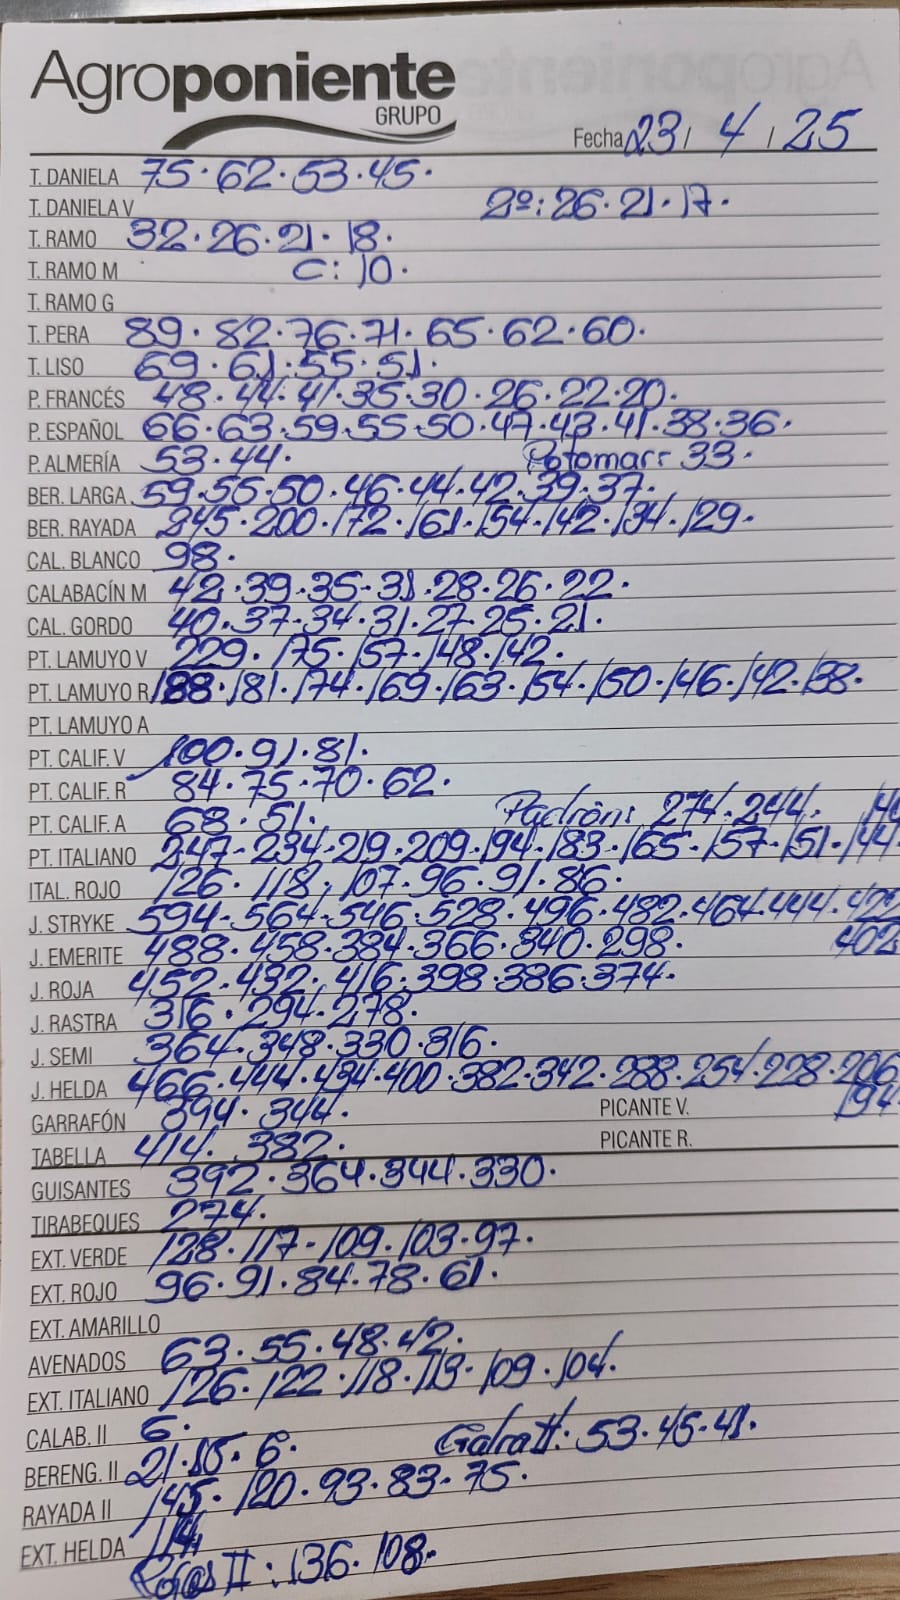 Agroponiente
GRUPO
Fecha 23 / 4 / 25
T. DANIELA 75 · 62 · 53 · 45 ·
T. DANIELA V 2º: 26 · 21 · 17 ·
T. RAMO 32 · 26 · 21 · 18 ·
T. RAMO M C: 10 ·
T. RAMO G
T. PERA 89 · 82 · 76 · 71 · 65 · 62 · 60 ·
T. LISO 69 · 61 · 55 · 51 ·
P. FRANCÉS 48 · 44 · 41 · 35 · 30 · 26 · 22 · 20 ·
P. ESPAÑOL 66 · 63 · 59 · 55 · 50 · 47 · 43 · 41 · 38 · 36 ·
P. ALMERÍA 53 · 44 · Potomac: 33 ·
BER. LARGA 59 · 55 · 50 · 46 · 44 · 42 · 39 · 37 ·
BER. RAYADA 245 · 200 · 172 · 161 · 154 · 142 · 134 · 129 ·
CAL. BLANCO 98 ·
CALABACÍN M 42 · 39 · 35 · 31 · 28 · 26 · 22 ·
CAL. GORDO 40 · 37 · 34 · 31 · 27 · 25 · 21 ·
PT. LAMUYO V 229 · 175 · 157 · 148 · 142 ·
PT. LAMUYO R 188 · 181 · 174 · 169 · 163 · 154 · 150 · 146 · 142 · 138 ·
PT. LAMUYO A
PT. CALIF. V 100 · 91 · 81 ·
PT. CALIF. R 84 · 75 · 70 · 62 ·
PT. CALIF. A 68 · 51 · Padrón: 274 · 244 ·
PT. ITALIANO 247 · 234 · 219 · 209 · 194 · 183 · 165 · 157 · 151 · 144
ITAL. ROJO 126 · 118 · 107 · 96 · 91 · 86 ·
J. STRYKE 594 · 564 · 546 · 528 · 496 · 482 · 464 · 444 · 422
J. EMERITE 488 · 458 · 384 · 366 · 340 · 298 · 402
J. ROJA 452 · 432 · 416 · 398 · 386 · 374 ·
J. RASTRA 316 · 294 · 278 ·
J. SEMI 364 · 348 · 330 · 316 ·
J. HELDA 466 · 444 · 434 · 400 · 382 · 342 · 288 · 254 · 228 · 206
GARRAFÓN 394 · 344 · PICANTE V. 194
TABELLA 414 · 382 · PICANTE R.
GUISANTES 392 · 364 · 344 · 330 ·
TIRABEQUES 274 ·
EXT. VERDE 128 · 117 · 109 · 103 · 97 ·
EXT. ROJO 96 · 91 · 84 · 78 · 61 ·
EXT. AMARILLO
AVENADOS 63 · 55 · 48 · 42 ·
EXT. ITALIANO 126 · 122 · 118 · 113 · 109 · 104 ·
CALAB. II 6 ·
BERENG. II 21 · 15 · 6 · II: 53 · 45 · 41 ·
RAYADA II 145 · 120 · 93 · 83 · 75 ·
EXT. HELDA 114
II: 136 · 108 ·